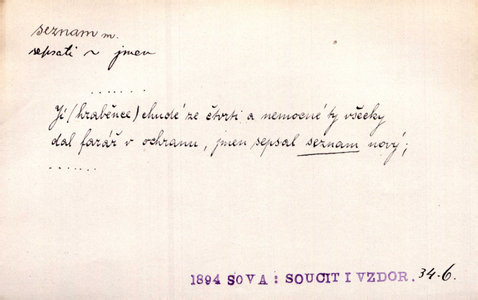 seznam m.
sepsati ~ jmen
......
Jí (hraběnce) chudé ze čtvrti a nemocné ty všecky
dal farář v ochranu, jmen sepsal seznam nový;
......
1894 SOVA: SOUCIT I VZDOR. 34.6.